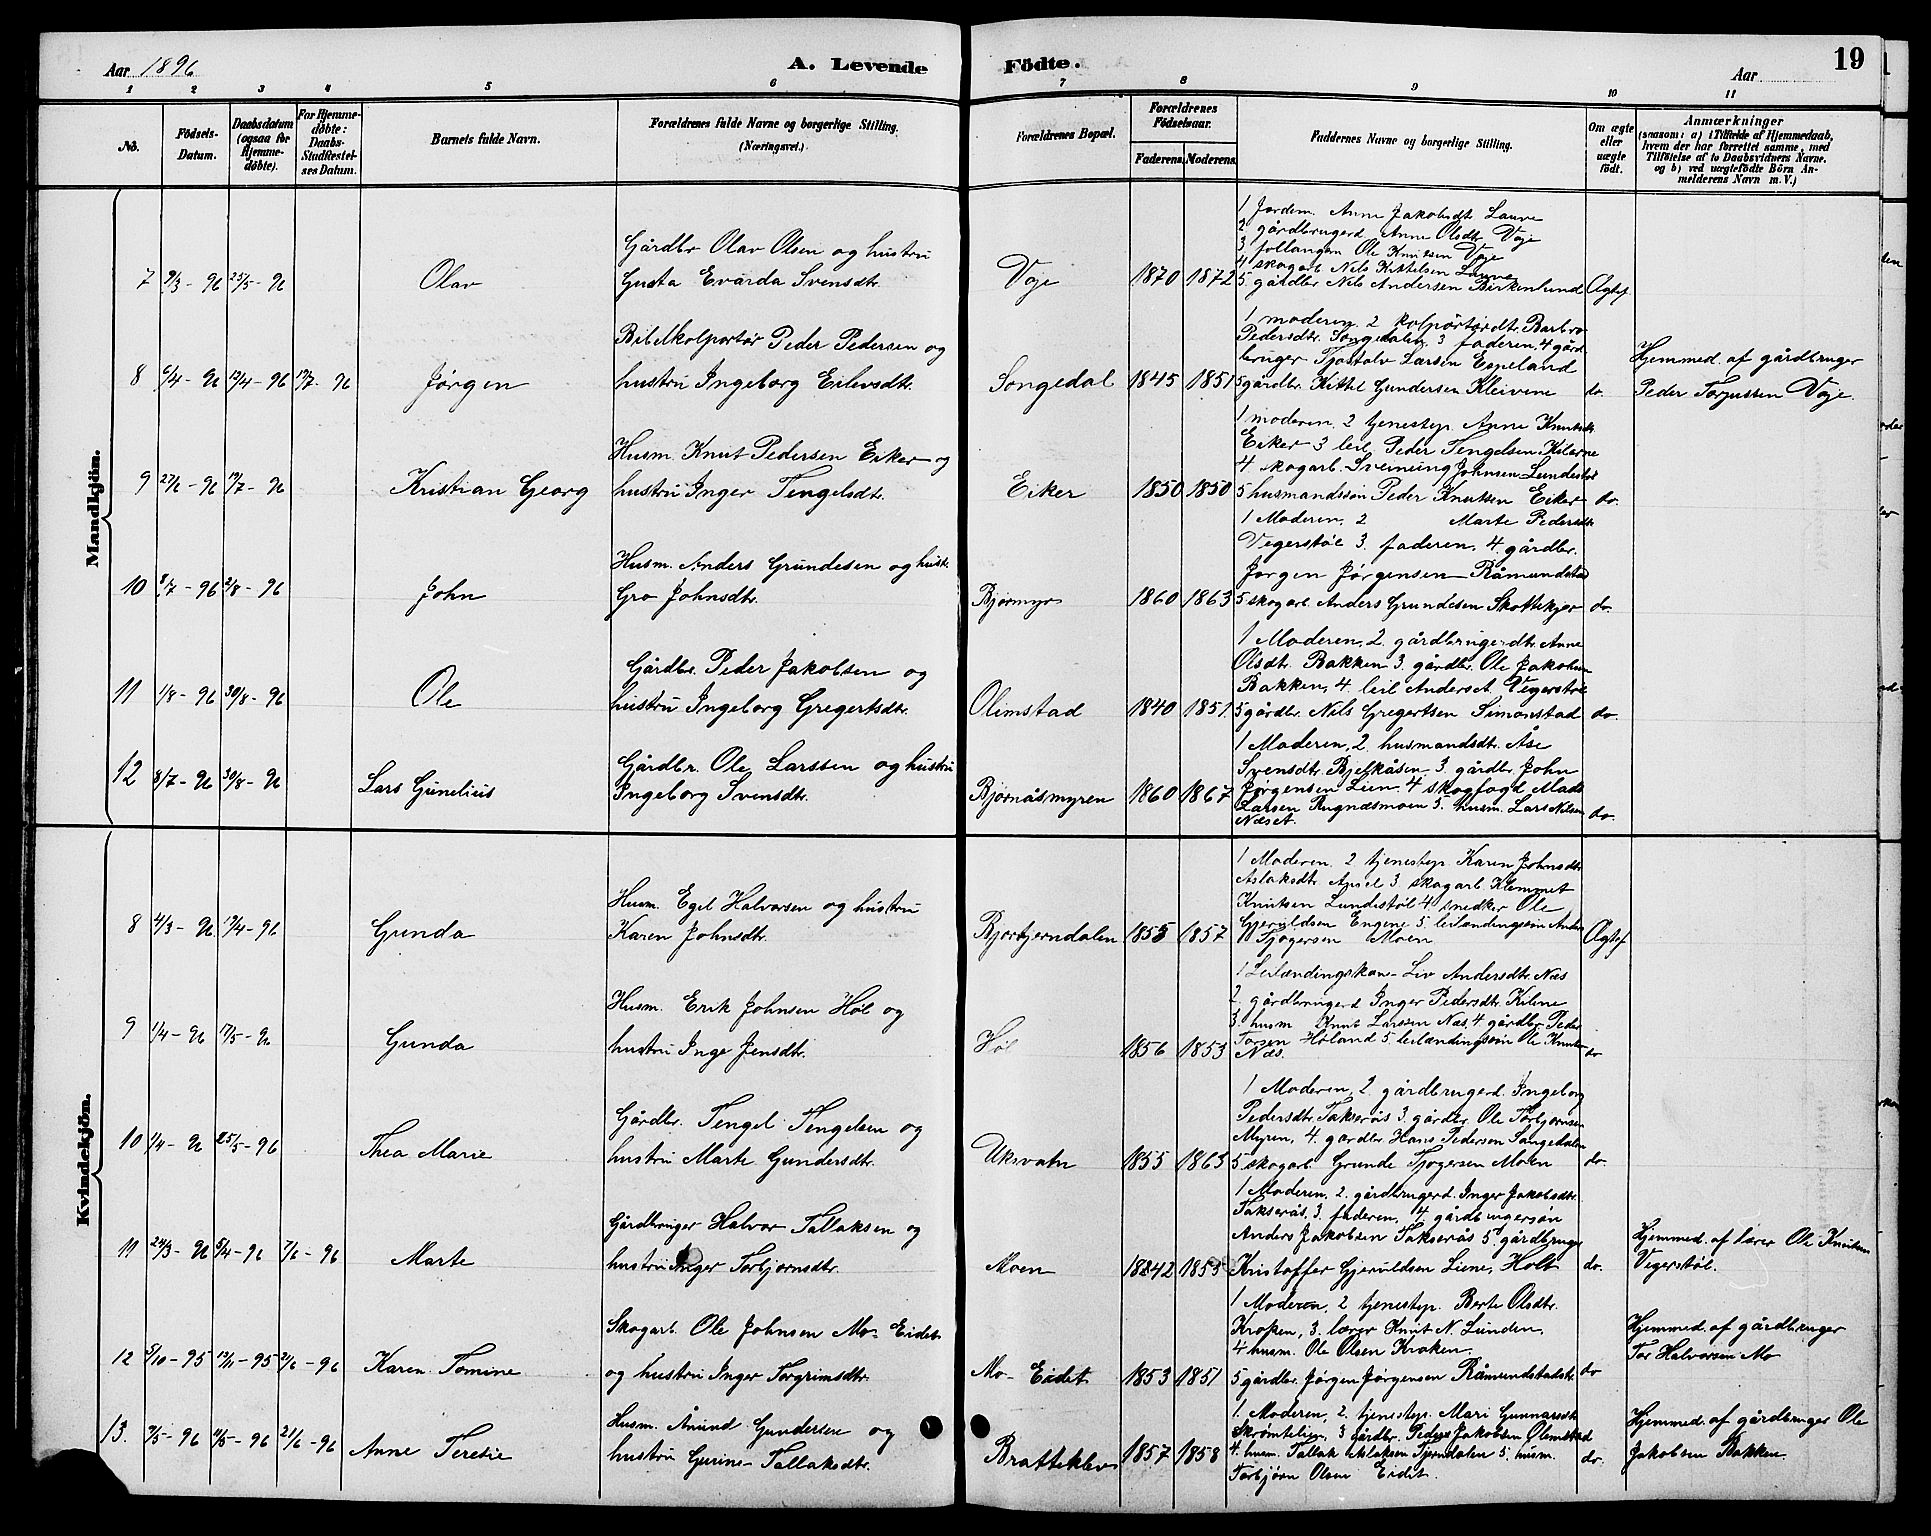 Aar 1896
A. Levende Födte.
Aar
19
1 2 3 4 5 6 7 8 9 10 11
No.
Födsels-Datum.
Daabsdatum (ogsaa for Hjemme-döbte).
For Hjemme-döbte: Daabs-Stadfæstel-ses Datum.
Barnets fulde Navn.
Forældrenes fulde Navne og borgerlige Stilling. (Næringsvei.)
Forældrenes Bopæl.
Forældrenes Födselsaar.
Faderens. Moderens.
Faddernes Navne og borgerlige Stilling.
Om ægte eller uægte födt.
Anmærkninger
(saasom: a) i Tilfælde af Hjemmedaab,
hvem der har forrettet samme, med
Tilföielse af to Daabsvidners Navne.
og b) ved uægtefödte Börn An-
melderens Navn m. V.)
Mandkjön.
7 9/3 - 96 25/5 - 96
Olav
Gårdbr Olav Olsen og hustru
Gusta Evarda Svensdtr.
Voje
1870 1872
1 Jordem. Anne Jakobsdt. Lauve
2 gårdbrugerd Anne Olsdtr. Voje
3 follangm Ole Knutsen Voje
4 skogarb Nils Kittelsen Lauve
5 gårdbr Nils Andersen Birkenlund
Ægtef.
8 6/4 - 96 12/4 - 96 17/7 - 96
Jørgen
Bibelkolportør Peder Pedersen og
hustru Ingeborg Eilevsdtr.
Songedal
1845 1851
1 moderen. 2 kolportørdtr. Barbro
Pedersdtr. Songedalen 3 faderen. 4 gård
bruger Tjostolv Larsen Espeland
5 gårdbr. Kittel Gundersen Kleivene
do.
Hjemmed. af gårdbruger
Peder Torjussen Voje.
9 27/6 - 96 19/7 - 96
Kristian Georg
Husm. Knut Pedersen Eiker og
hustru Inger Tengelsdtr.
Eiker
1850 1850
1 moderen, 2 tjenestep. Anne Knutsdt
Eiker 3 leil Peder Tengelsen Kilerne
4 skogarb. Sveinung Johnsen Lundestøl
5 husmandssøn Peder Knutsen Eiker
do.
10 8/7 - 96 2/8 - 96
John
Husm. Anders Grundesen og hust.
Gro Johnsdtr.
Bjørmyr
1860 1863
1 Moderen, 2 Marte Pedersdtr
Vegerstøl 3. faderen, 4. gårdbr.
Jørgen Jørgensen Råmundstad
5 skogarb. Anders Grundesen Skottekjør
do.
11 1/8 - 96 30/8 - 96
Ole
Gårdbr. Peder Jakobsen og
hustru Ingeborg Gregertsdtr.
Olimstad
1840 1851
1 Moderen, 2. gårdbrugerdtr. Anne
Olsdtr. Bakken 3. gårdbr. Ole Jakobsen
Bakken, 4. leil Anders A. Vegerstøl
5 gårdbr. Nils Gregertsen Simonstad
do.
12 8/7 - 96 30/8 - 96
Lars Gunelius
Gårdbr. Ole Larssen og hustru
Ingeborg Svensdtr.
Bjørnåsmyren
1860 1867
1 Moderen, 2. husmandsdtr. Åse
Svensdtr. Bjelkåsen. 3. gårdbr. John
Jørgensen Lien. 4 skogfogd Mads
Larsen Rugnæsmoen 3. husm. Lars Nilsen
Næset.
do.
Kvindekjön.
8 4/3 - 96 19/4 - 96
Gunda
Husm. Egel Halvorsen og hustru
Karen Johnsdtr.
1855 1857
1 Moderen. 2 tjenestep. Karen Johnsdtr
Aslaksdtr. 3 skogarb Klemmet
Knutsen Lundestøl 4 snedker Ole
Gjeruldsen Engene 5. leilændingssøn Anders
Tjøgersen Moen
Ægtef.
9 1/4 - 96 17/5 - 96
Gunda
Husm. Erik Johnsen Høl og
hustru Inge Jensdtr.
Høl
1856 1853
1 Leilændingskone Liv Andersdtr. Næs
2. gårdbrugerd Inger Pedersdtr. Kilene
3. husm Knut Larssen Næs. 4 gårdbr Peder
Torsen Høland 5. leilændingssøn Ole Knuts
Næs.
do
10 1/4 - 96 25/5 - 96
Thea Marie
Gårdbr. Tengel Tengelsen og
hustru Marte Gundersdtr.
Uksvatn
1855 1863
1 Moderen, 2 gårdbrugerd. Ingeborg
Pedersdtr. Takserås 3. gårdbr. Ole Torbjørnsen
Myren, 4. gårdbr Hans Pedersen Songedalen
5 skogarb. Grunde Tjøgersen Moen
do.
11 24/3 - 96 5/4 - 96 7/6 - 96
Marte
Gårdbruger Halvor Tallaksen og
hustru Inger Torbjørnsdtr.
Moen
18842 1855
1 Moderen, 2. gårdbrugerd. Inger Jakobsdtr.
Takserås, 3. faderen, 4 gårdbrugersøn
Anders Jakobsen Takserås 5. gårdbruger
Kristoffer Gjeruldsen Liene, Holt
do.
Hjemmed. af lærer Ole Knutsen
Vegerstøl.
12 5/10 - 95 17/11 - 95 2/6 - 96
Karen Tomine
Skogarb. Ole Johnsen Mo- Eidet
og hustru Inger Torgrimsdtr.
Mo- Eidet
1853 1851
1 Moderen, 2 tjenestep. Berte Olsdtr.
Kroken, 3. lærer Knut N. Lunden,
4 husm. Ole Olsen Kroken.
5 gårdbr. Jørgen Jørgensen Råmundstad
do
Hjemmed. af gårdbruger
Tor Halvorsen Mo
13. 7/5 - 96 11/5 - 96 21/6 - 96
Anne Teresie
Husm. Ånund Gundersen og
hustru Gurine Tallaksdtr.
Bratteklev
1857 1858
1. Moderen, 2. tjenestep. Mari Gunnarsdtr
Skrømtelien, 3 gårdbr. Peder Jakobsen Olimstad
4. husm. Tallak Aslaksen 5. husm.
Torbjørn Olsen Eidet.
do.
Hjemmed. af gårdbruger Ole
Jakobsen Bakken.